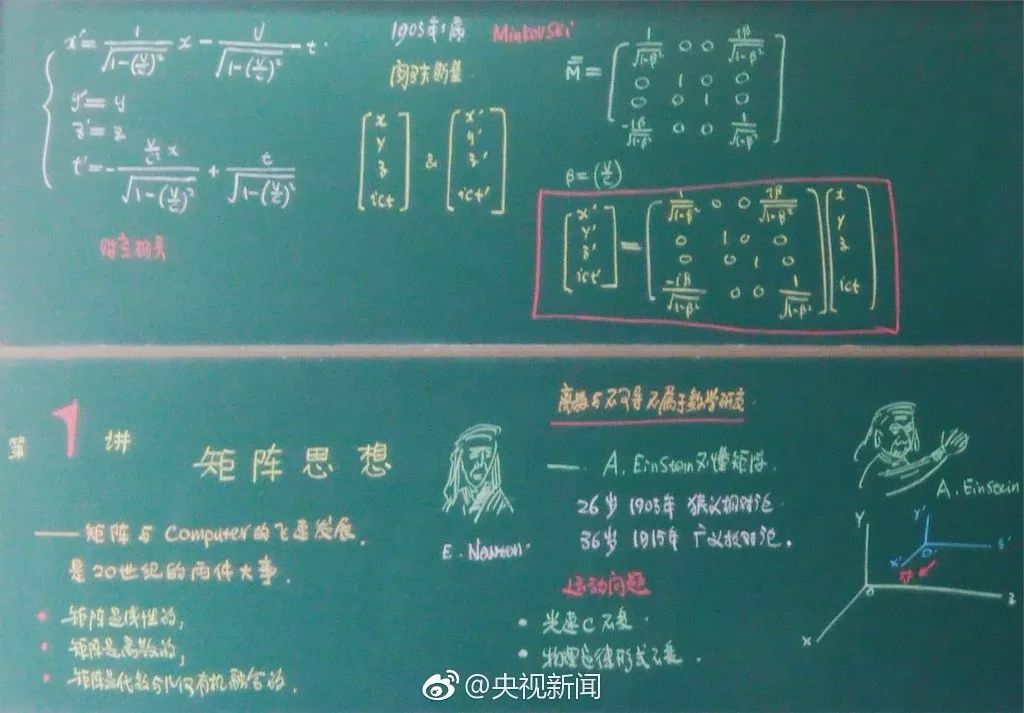 x' = \frac{1}{\sqrt{1-(\frac{v}{c})^2}} x - \frac{v}{\sqrt{1-(\frac{v}{c})^2}} t.
y' = y
z' = z
t' = -\frac{\frac{v}{c^2} x}{\sqrt{1-(\frac{v}{c})^2}} + \frac{t}{\sqrt{1-(\frac{v}{c})^2}}
时空相关
1905年
MinkovSki
[x y z ict] & [x' y' z' ict']
M =
1/√(1-β²) 0 0 iβ/√(1-β²)
0 1 0 0
0 0 1 0
-iβ/√(1-β²) 0 0 1/√(1-β²)
β = (v/c)
[x' y' z' ict'] =
1/√(1-β²) 0 0 iβ/√(1-β²)
0 1 0 0
0 0 1 0
-iβ/√(1-β²) 0 0 1/√(1-β²)
[x y z ict]
第1讲
矩阵思想
—— 矩阵与Computer的飞速发展,
是20世纪的两件大事.
• 矩阵是线性的;
• 矩阵是离散的;
• 矩阵是代数与几何有机融合的.
E. Newton.
离散与不可导不属于数学研究.
—— A. EinStein不懂矩阵.
26岁 1905年 狭义相对论.
36岁 1915年 广义相对论.
运动问题
• 光速C不变.
• 物理定律形式不变.
A. EinStein
Y
X
Z
O
Y'
X'
Z'
O'
@央视新闻